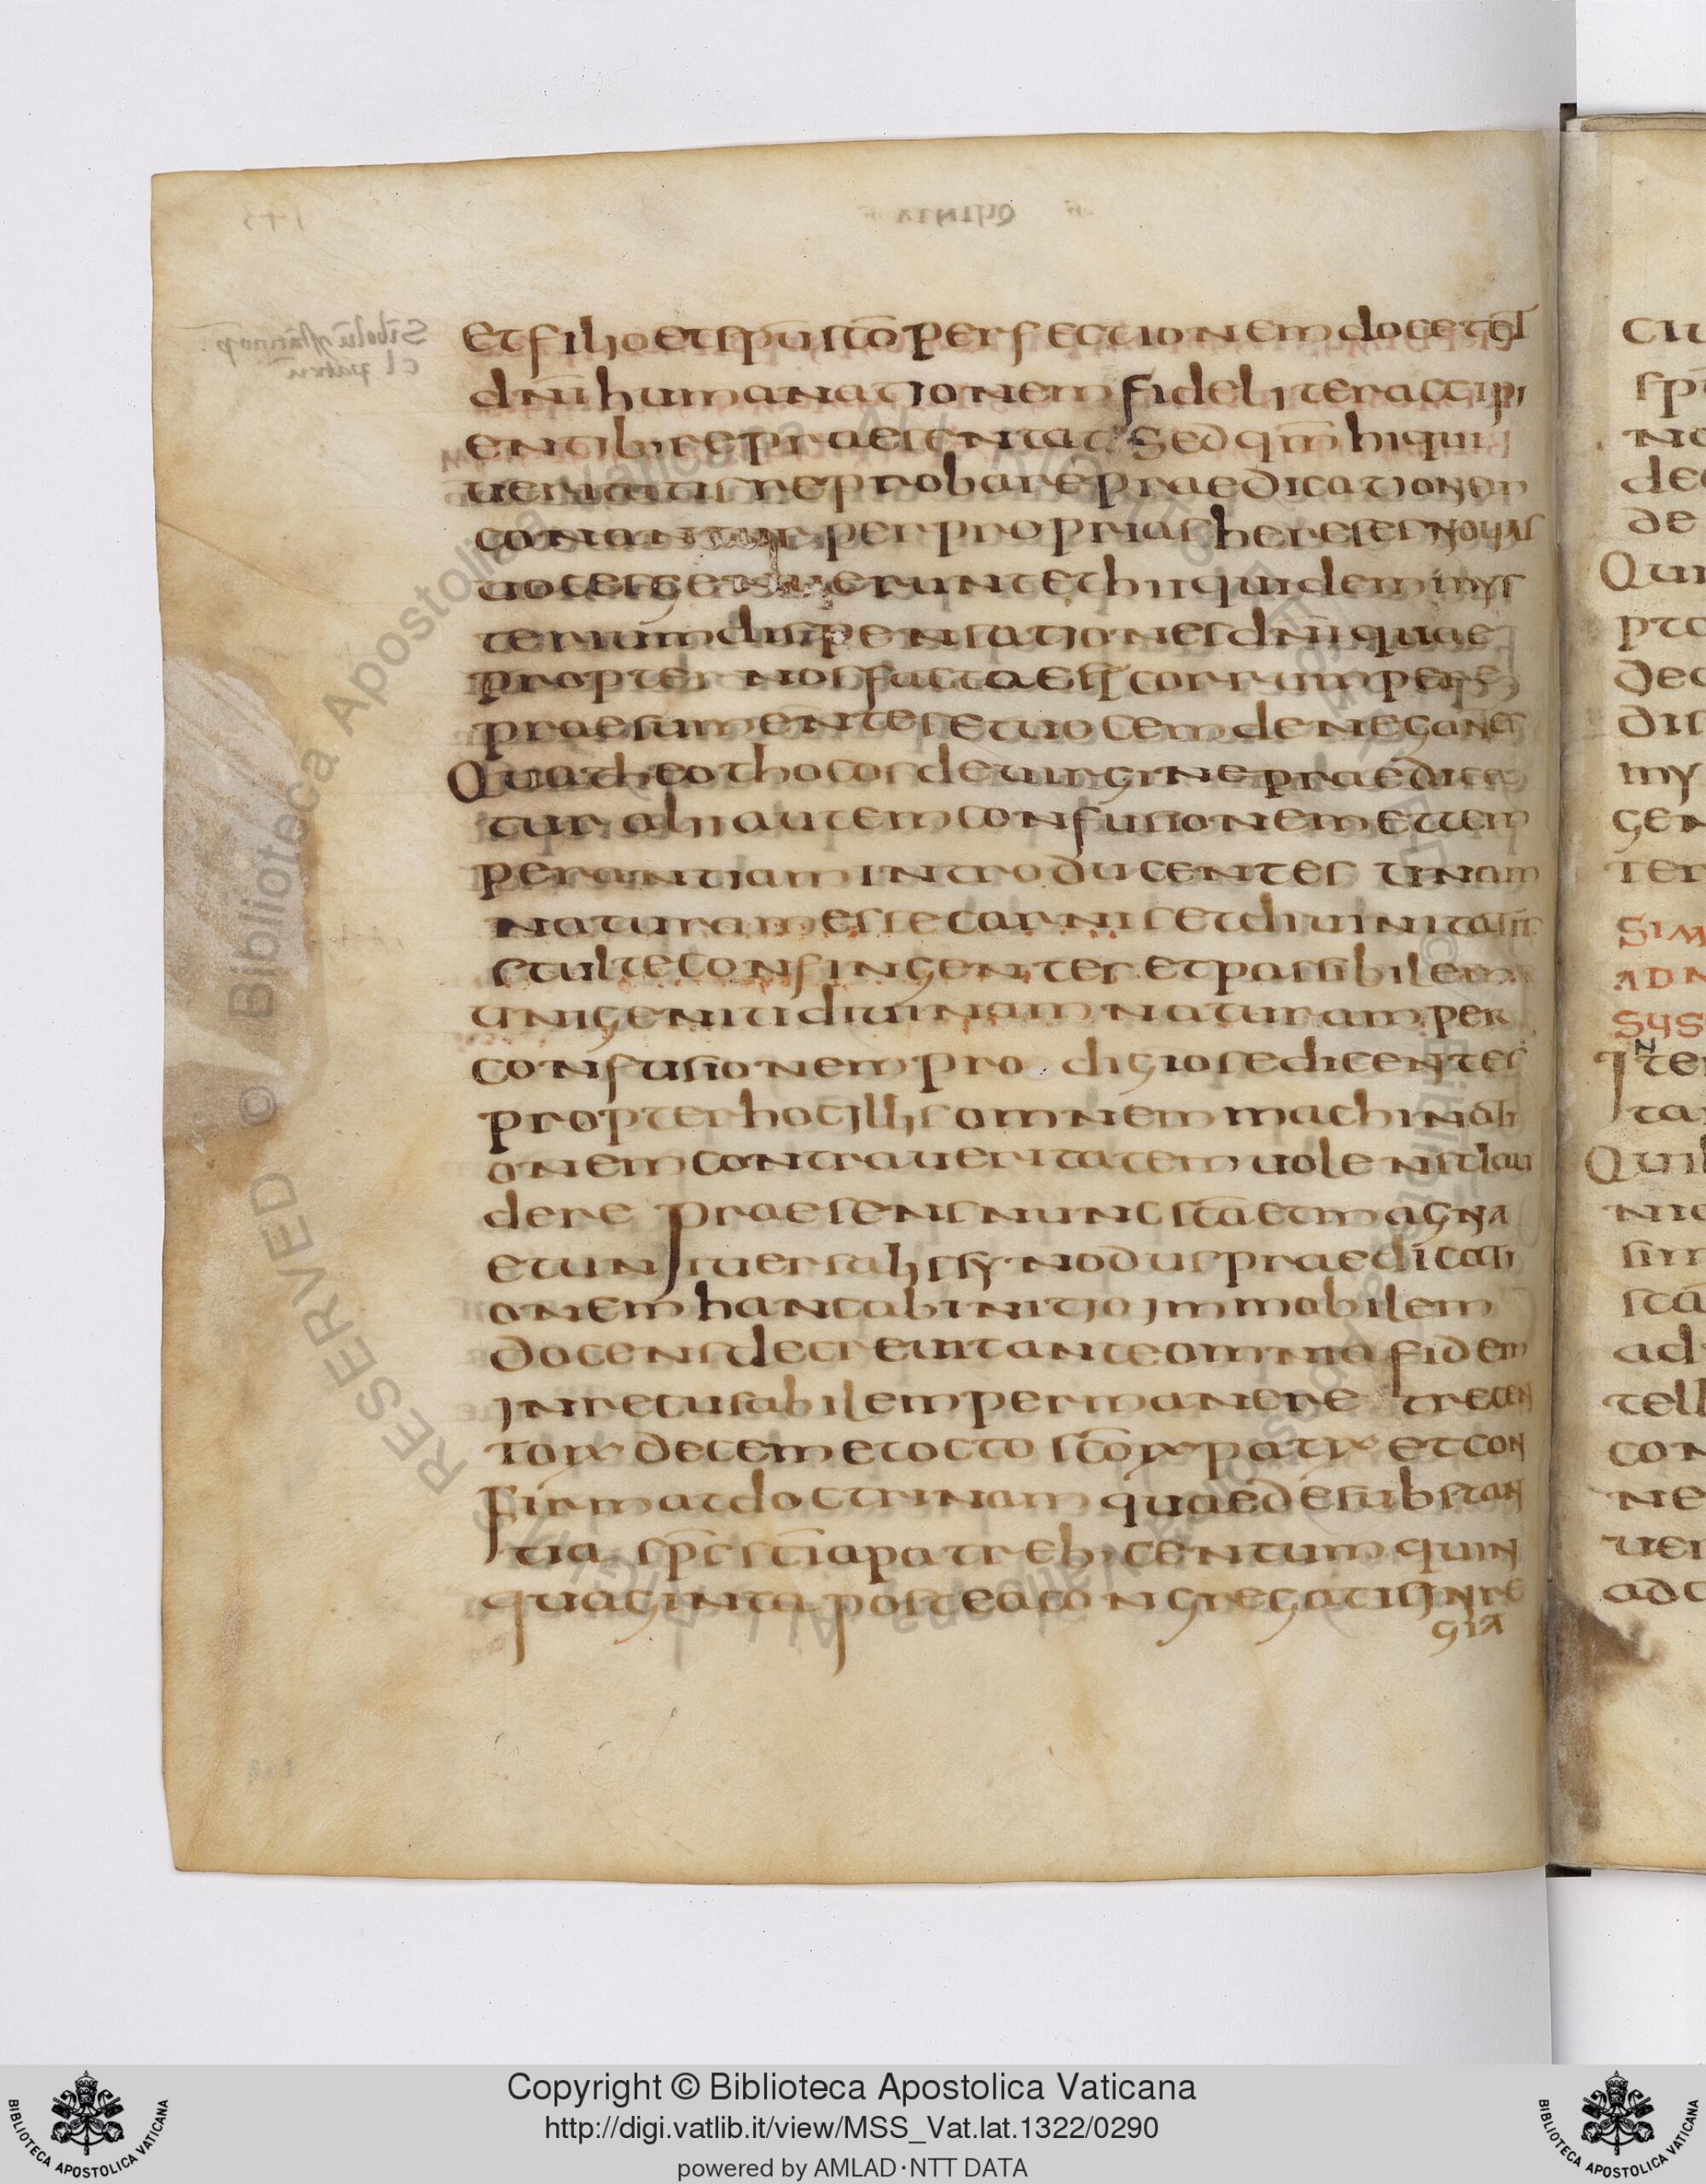 et filio et spu sco perfectionem docet et
dni humanationem fideliter accipi
entib; repraesentat Sed qm hi qui
ueritatis reprobare praedicationem
conantur per proprias hereses nouas
uoces genuerunt et hii quidem mys
terium dispensationes dni quae
propter nos facta est corrumpere
praesumentes et uocem denegantes
Qua theothocos de uirgine praedica
tur alii autem confusionem et tem
perantiam introducentes unam
naturam esse carnis et diuinitatis
stulte confingentes et passibilem
unigeniti diuinam naturam per
confusionem prodigiose dicentes
propter hoc illis omnem machinati
onem contra ueritatem uolens clau
dere praesens nunc sca et magna
et uniuersalis synodus praedicati
onem hanc ab initio immobilem
docens decreuit ante omnia fidem
inrecusabilem permanere trecen
torum decem et octo scorum patrum et con
firmat doctrinam quae de substan
tia sps sci a patrib; centum quin
quaginta postea congregatis in re
gia
Copyright © Biblioteca Apostolica Vaticana
http://digi.vatlib.it/view/MSS_Vat.lat.1322/0290
powered by AMLAD·NTT DATA